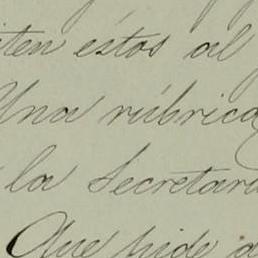 iten éstos al
Una rúbrica
la Secretara
Que pide a